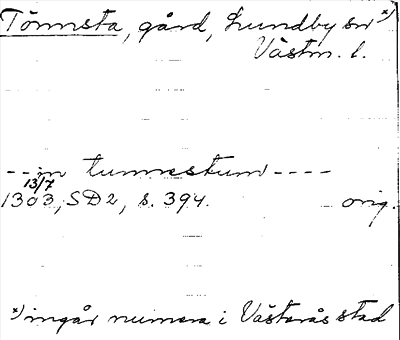 Tömsta, gård, Lundby sn x)
Västm. l.
-- in tumestum ----
13/7
1303, SD 2, s. 394. orig.
x) ingår numera i Västerås stad